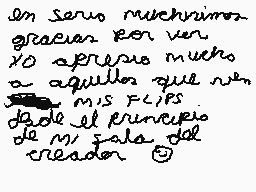 en serio muchisimas
gracias por ver
yo apresio mucho
a aquellos que ven
MIS FLIPS
desde el principio
de mi sala del
creador